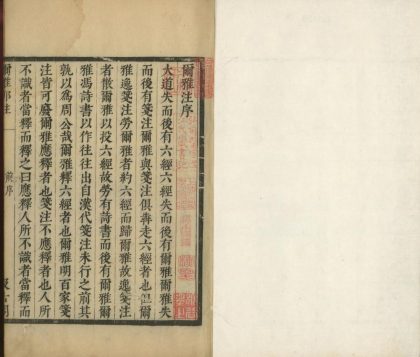 爾雅注序
大道失而後有六經六經失而後有爾雅爾雅失
而後有箋注爾雅與箋注俱犇走六經者也但爾
雅逸箋注勞爾雅者約六經而歸爾雅故逸箋注
者散爾雅以投六經故勞有詩書而後有爾雅爾
雅馮詩書以作往往出自漢代箋注未行之前其
孰以爲周公哉爾雅釋六經者也爾雅明百家箋
注皆可廢爾雅應釋者也箋注不應釋者也人所
不識者當釋而釋之曰應釋人所不識者當釋而
爾雅鄭注
序
汲古閣